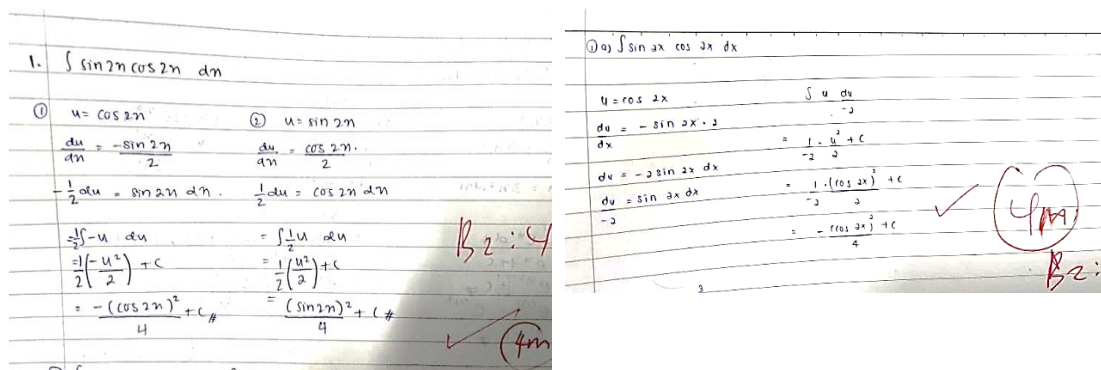 1. ∫ sin 2n cos 2n dn
① u = cos 2n
du/dn = -sin 2n / 2
-1/2 du = sin 2n dn.
= 1/2 ∫ -u du
= 1/2 (-u²/2) + c
= -(cos 2n)²/4 + c #
② u = sin 2n
du/dn = cos 2n. / 2
1/2 du = cos 2n dn
= ∫ 1/2 u du
= 1/2 (u²/2) + c
= (sin 2n)²/4 + c #
B2 : 4
4m
① a) ∫ sin 2x cos 2x dx
u = cos 2x
du/dx = - sin 2x · 2
du = -2 sin 2x dx
du/-2 = sin 2x dx
∫ u du/-2
= 1/-2 · u²/2 + c
= 1/-2 · (cos 2x)²/2 + c
= - (cos 2x)²/4 + c
4m
B2 :